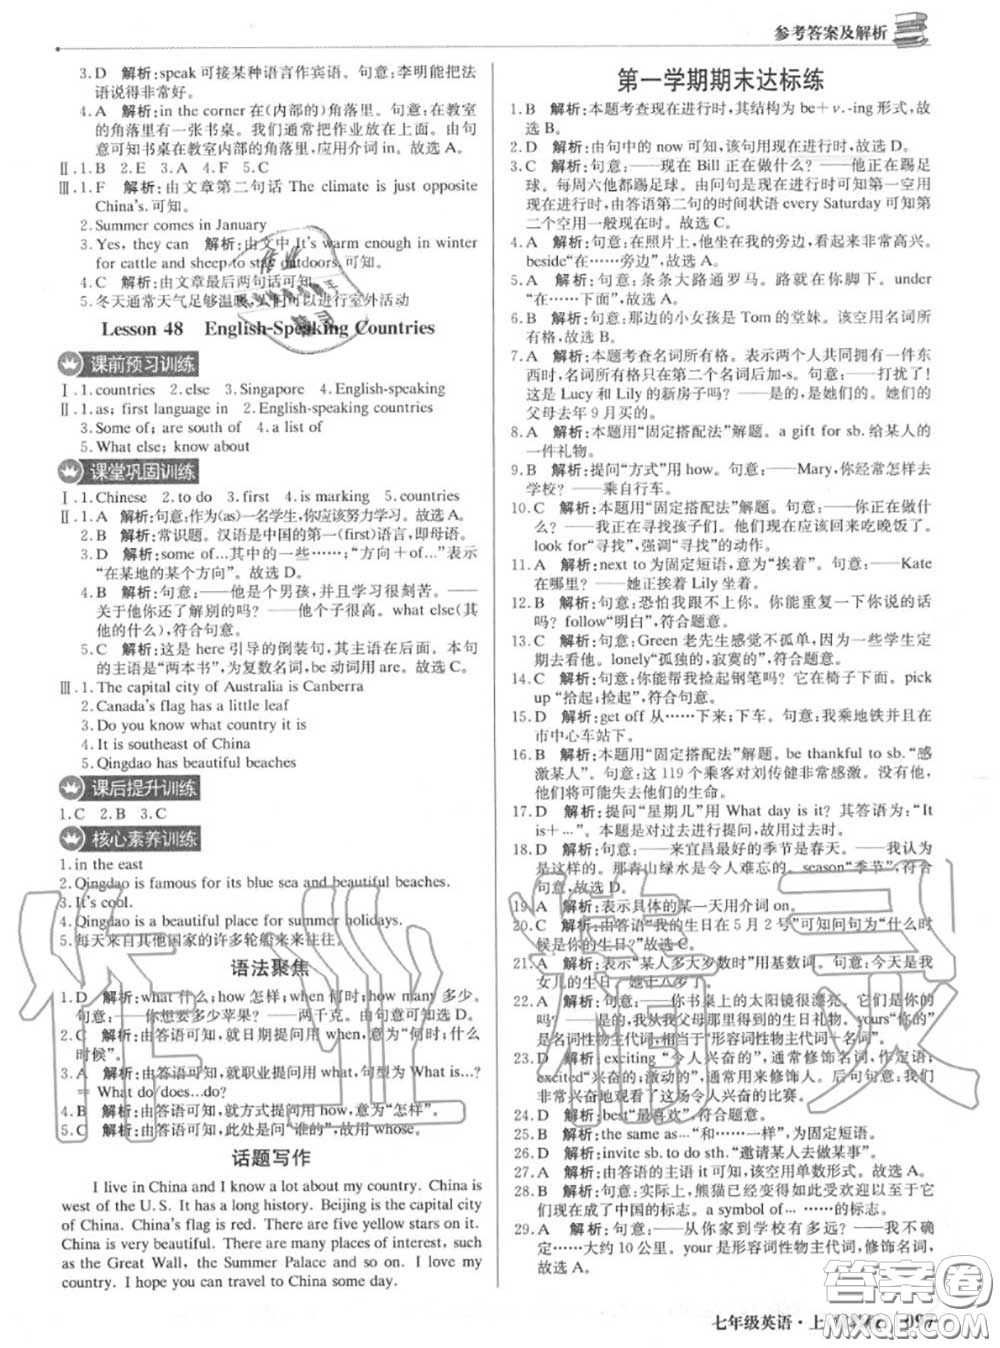 参考答案及解析
3. D 解析:speak 可接某种语言作宾语。句意:李明能把法
语说得非常好。
4. A 解析:in the corner 在(内部的)角落里。句意:在教室
的角落里有一张书桌。我们通常把作业放在上面。由句
意可知书桌在教室内部的角落里,应用介词 in。故选 A。
Ⅱ. 1. B 2. E 3. A 4. F 5. C
Ⅲ. 1. F 解析:由文章第二句话 The climate is just opposite
China's. 可知。
2. Summer comes in January
3. Yes, they can 解析:由文中 It's warm enough in winter
for cattle and sheep to stay outdoors. 可知。
4. C 解析:由文章最后两句话可知。
5. 冬天通常天气足够温暖,人们可以进行室外活动
Lesson 48 English-Speaking Countries
课前预习训练
Ⅰ. 1. countries 2. else 3. Singapore 4. English-speaking
Ⅱ. 1. as; first language in 2. English-speaking countries
3. Some of; are south of 4. a list of
5. What else; know about
课堂巩固训练
Ⅰ. 1. Chinese 2. to do 3. first 4. is marking 5. countries
Ⅱ. 1. A 解析:句意:作为(as)一名学生,你应该努力学习。故选 A。
2. B 解析:常识题。汉语是中国的第一(first)语言,即母语。
3. D 解析:some of…其中的一些……;“方向+of…”表示
“在某地的某个方向”。故选 D。
4. B 解析:句意:——他是个男孩,并且他学习很刻苦。——
关于他你还了解别的吗? ——他个子很高。what else(其
他的什么),符合句意。
5. C 解析:这是 here 引导的倒装句,其主语在后面。本句
的主语是“两本书”,为复数名词,be 动词用 are。故选 C。
Ⅲ. 1. The capital city of Australia is Canberra
2. Canada's flag has a little leaf
3. Do you know what country it is
4. It is southeast of China
5. Qingdao has beautiful beaches
课后提升训练
1. C 2. B 3. C
核心素养训练
1. in the east
2. Qingdao is famous for its blue sea and beautiful beaches.
3. It's cool.
4. Qingdao is a beautiful place for summer holidays.
5. 每天来自其他国家的许多轮船来来往往。
语法聚焦
1. D 解析:what 什么;how 怎样;when 何时;how many 多少。
句意:——你想要多少苹果? ——两千克。由句意可知选 D。
2. C 解析:由答语可知,就日期提问用 when,意为“何时;什么
时候”。
3. A 解析:由答语可知,就职业提问用 what,句型为 What is…?
= What do/does…do?
4. B 解析:由答语可知,就方式提问用 how,意为“怎样”。
5. C 解析:由答语可知,此处是问“谁的”,故用 whose。
话题写作
I live in China and I know a lot about my country. China is
west of the U. S. It has a long history. Beijing is the capital city
of China. China's flag is red. There are five yellow stars on it.
China is very beautiful. There are many places of interest, such
as the Great Wall, the Summer Palace and so on. I love my
country. I hope you can travel to China some day.
第一学期期末达标练
1. B 解析:本题考查现在进行时,其结构为 be+v.-ing 形式,故
选 B。
2. D 解析:由句中的 now 可知,该句用现在进行时,故选 D。
3. C 解析:句意:——现在 Bill 正在做什么? ——他正在踢足
球。每周六他都踢足球。由问句是现在进行时可知第一空用
现在进行时,由答语第二句的时间状语 every Saturday 可知第
二个空用一般现在时。故选 C。
4. A 解析:句意:在照片上,他坐在我的旁边,看起来非常高兴。
beside“在……旁边”,故选 A。
5. A 解析:句意:条条大路通罗马。路就在你脚下。under
“在……下面”,故选 A。
6. B 解析:句意:那边的小女孩是 Tom 的堂妹。该空用名词所
有格,故选 B。
7. A 解析:本题考查名词所有格。表示两个人共同拥有一件东
西时,名词所有格只在第二个名词后加-s。句意:——打扰了!
这是 Lucy 和 Lily 的新房子吗? ——是的,是她们的。她们的
父母去年 9 月买的。
8. A 解析:本题用“固定搭配法”解题。a gift for sb. 给某人的
一件礼物。
9. B 解析:提问“方式”用 how。句意:——Mary,你经常怎样去
学校? ——乘自行车。
10. C 解析:本题用“固定搭配法”解题。句意:——你正在做什
么? ——我正在寻找孩子们。他们现在应该回来吃晚饭了。
look for“寻找”,强调“寻找”的动作。
11. A 解析:next to 为固定短语,意为“挨着”。句意:——Kate
在哪里? ——她正挨着 Lily 坐着。
12. B 解析:句意:恐怕我跟不上你。你能重复一下你说的话
吗? follow“明白”,符合题意。
13. C 解析:句意:Green 老先生感觉不孤单,因为一些学生定
期去看他。lonely“孤独的,寂寞的”,符合题意。
14. C 解析:句意:你能帮我捡起钢笔吗? 它在椅子下面。pick
up “拾起;捡起”,符合句意。
15. D 解析:get off 从……下来;下车。句意:我乘地铁并且在
市中心车站下。
16. B 解析:本题用“固定搭配法”解题。be thankful to sb. “感
激某人”。句意:这 119 个乘客对刘传健非常感激。没有他,
他们将失去他们的生命。
17. D 解析:提问“星期几”用 What day is it? 其答语为:“It
is+…”。本题是对过去进行提问,故用过去时。
18. D 解析:句意:——来宜昌最好的季节是春天。——我是
认为的。那青山绿水是令人难忘的。season“季节”,符合
句意,故选 D。
19. A 解析:表示具体的某一天用介词 on。
20. C 解析:由答语“我的生日在 5 月 2 号”可知问句为“什么时
候是你的生日?”故选 C。
21. A 解析:表示“某人多大岁数时”用基数词。句意:今天是我
女儿的生日。她十八岁了。
22. A 解析:句意:——你书桌上的太阳镜很漂亮。它们是你的
吗? ——是的,我从我父母那里得到的生日礼物。yours“你的”
是名词性物主代词,相当于“形容词性物主代词+名词”。
23. D 解析:exciting “令人兴奋的”,通常修饰名词,作定语;
excited“兴奋的;激动的”,通常用来修饰人。后句可知:我们
非常兴奋地观看了这场令人兴奋的比赛。
24. D 解析:best“最喜欢”,符合题意。
25. B 解析:the same as…“和……一样”,为固定短语。
26. D 解析:invite sb. to do sth. “邀请某人去做某事”。
27. A 解析:由答语的主语 it 可知,应用单数形式,故选 A。
28. B 解析:句意:实际上,熊猫已经变得如此受欢迎以至于它
们现在成了中国的标志。a symbol of… ……的标志。
29. A 解析:句意:——从你家到学校有多远? ——我不确
定……大约 10 公里。your 是形容词性物主代词,修饰名词,
故选 A。
作业精灵
答案卷
七年级英语·上